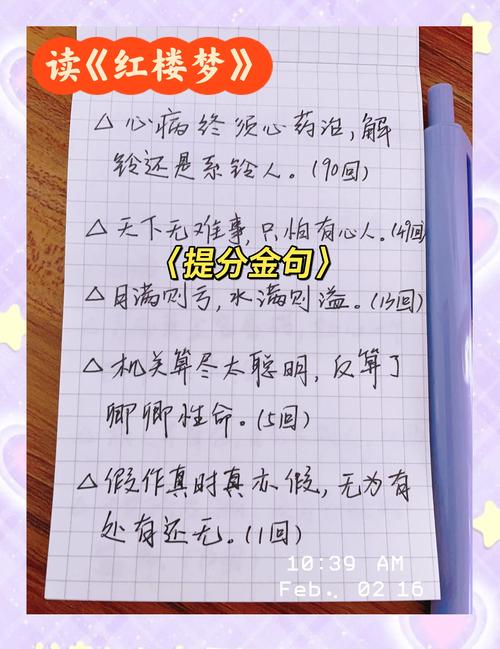 读《红楼梦》
△心病终须心药治,解
铃还是系铃人。(90回)
△天下无难事,只怕有心人。(49回)
〈提分金句〉
△月满则亏,水满则溢。(13回)
△机关算尽太聪明,反算了
卿卿性命。(5回)
△假作真时真亦假,无为有
处有还无。(1回)
10:39 AM
Feb. 02 16